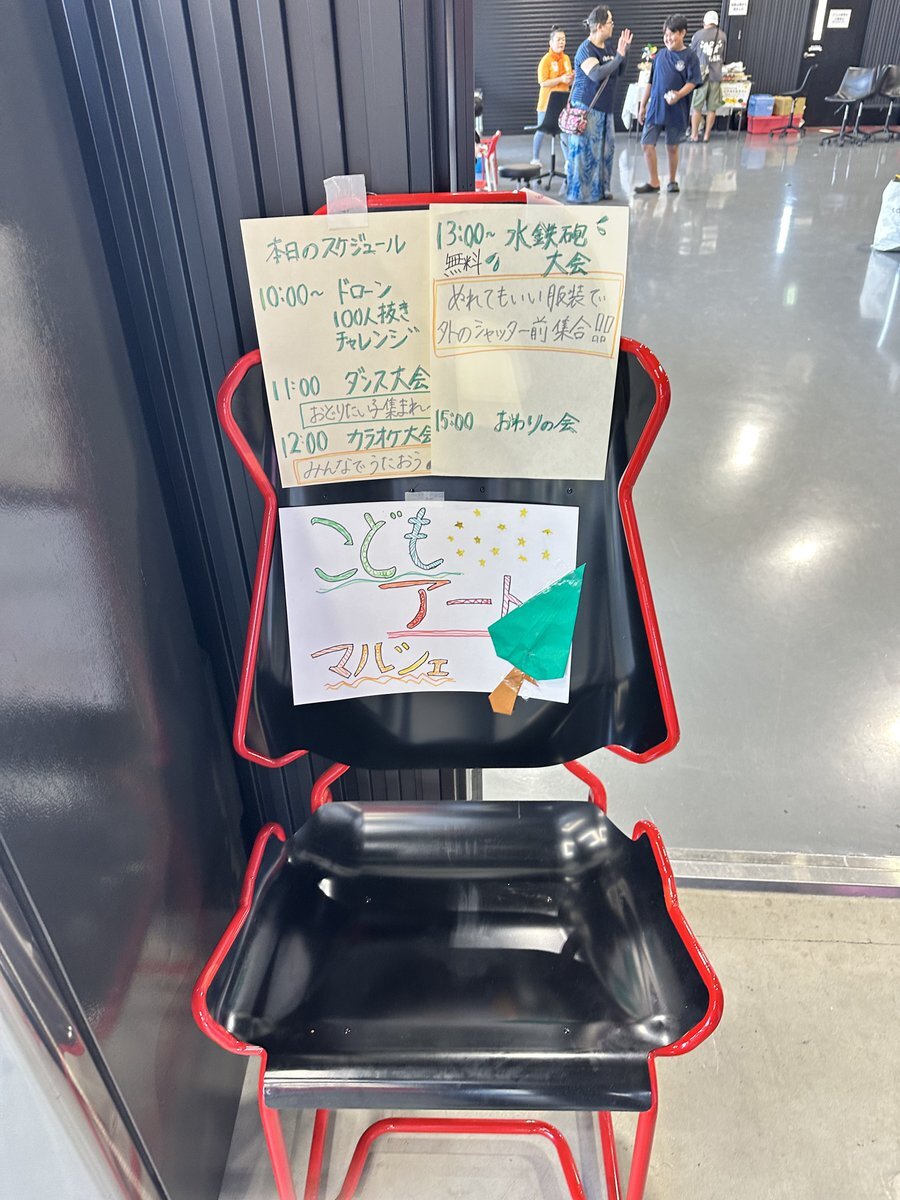 本日のスケジュール
10:00~ ドローン
100人抜き
チャレンジ
11:00 ダンス大会
おどりたい子集まれ~
12:00 カラオケ大会
みんなでうたおう
13:00~ 水鉄砲
無料 大会
ぬれてもいい服装で
外のシャッター前集合!!
15:00 おわりの会
こども
アート
マルシェ